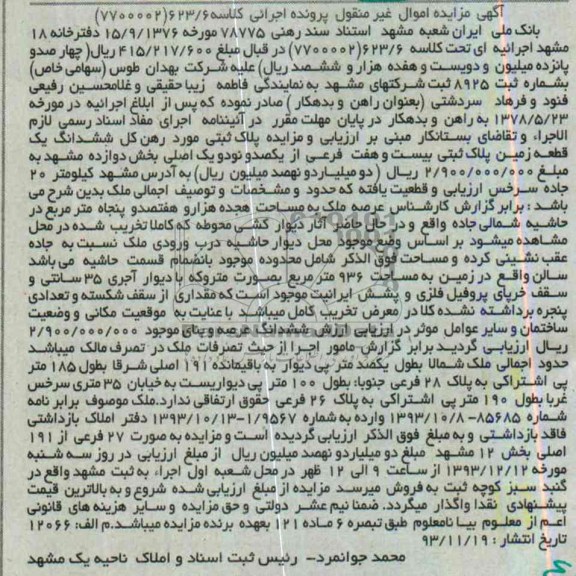 آگهی مزایده اموال غیر منقول پرونده اجرائی کلاسه ۶۲۳/۶(۷۷۰۰۰۰۲)
بانک ملی ایران شعبه مشهد استناد سند رهنی ۷۸۷۷۵ مورخه ۱۵/۹/۱۳۷۶ دفترخانه ۱۸
مشهد اجرائیه ای تحت کلاسه ۶۲۳/۶(۷۷۰۰۰۰۲) در قبال مبلغ ۴۱۵/۲۱۷/۶۰۰ ریال( چهار صدو
پانزده میلیون و دویست و هفده هزار و ششصد ریال) علیه شرکت بهدان طوس (سهامی خاص)
بشماره ثبت ۸۹۲۵ ثبت شرکتهای مشهد به نمایندگی فاطمه زیبا حقیقی و غلامحسین رفیعی
فنود و فرهاد سردشتی (بعنوان راهن و بدهکار ) صادر نموده که پس از ابلاغ اجرائیه در مورخه
۱۳۷۸/۵/۲۳ به راهن و بدهکار در پایان مهلت مقرر در آئیننامه اجرای مفاد اسناد رسمی لازم
الاجراء و تقاضای بستانکار مبنی بر ارزیابی و مزایده پلاک ثبتی مورد رهن کل ششدانگ یک
قطعه زمین پلاک ثبتی بیست و هفت فرعی از یکصدو نودو یک اصلی بخش دوازده مشهد به
مبلغ ۲/۹۰۰/۰۰۰/۰۰۰ ریال ( دو میلیارد و نهصد میلیون ریال) به آدرس مشهد کیلومتر ۲۰
جاده سرخس ارزیابی و قطعیت یافته که حدود و مشخصات و توصیف اجمالی ملک بدین شرح می
باشد : برابر گزارش کارشناس عرصه ملک به مساحت هجده هزارو هفتصدو پنجاه متر مربع در
حاشیه شمالی جاده واقع و در حال حاضر آثار دیوار کشی محوطه که کاملا تخریب شده در محل
مشاهده میشود بر اساس وضع موجود محل دیوار حاشیه درب ورودی ملک نسبت به جاده
عقب نشینی کرده و مساحت فوق الذکر شامل محدوده موجود بانضمام قسمت حاشیه می باشد
سالن واقع در زمین به مساحت ۹۳۶ متر مربع بصورت متروکه با دیوار آجری ۳۵ سانتی و
سقف خرپای پروفیل فلزی و پشش ایرانیت موجود است که مقداری از سقف شکسته و تعدادی
پنجره برداشته نشده کلا در معرض تخریب کامل میباشد با عنایت به موقعیت مکانی و وضعیت
ساختمان و سایر عوامل موثر در ارزیابی ارزش ششدانگ عرصه و بنای موجود ۲/۹۰۰/۰۰۰/۰۰۰
ریال ارزیابی گردید برابر گزارش مامور اجرا از حیث تصرفات ملک در تصرف مالک میباشد
حدود اجمالی ملک شمالا بطول یکصد متر پی دیوار به باقیمانده ۱۹۱ اصلی شرقا بطول ۱۸۵ متر
پی اشتراکی به پلاک ۲۸ فرعی جنوبا: بطول ۱۰۰ متر پی دیواریست به خیابان ۳۵ متری سرخس
غربا بطول ۱۹۰ متر پی اشتراکی به پلاک ۲۶ فرعی حقوق ارتفاقی ندارد.ملک موصوف برابر نامه
شماره ۸۵۶۸۵-۱۳۹۳/۱۰/۸ وارده به شماره ۱/۹۵۶۷-۱۳۹۳/۱۰/۱۳ دفتر املاک بازداشتی
فاقد بازداشتی و به مبلغ فوق الذکر ارزیابی گردیده است و مزایده به صورت ۲۷ فرعی از ۱۹۱
اصلی بخش ۱۲ مشهد مبلغ دو میلیاردو نهصد میلیون ریال از مبلغ ارزیابی در روز سه شنبه
مورخه ۱۳۹۳/۱۲/۱۲ از ساعت ۹ الی ۱۲ ظهر در محل شعبه اول اجراء به ثبت مشهد واقع در
گنبد سبز کوچه ثبت به فروش میرسد مزایده از مبلغ ارزیابی شده شروع و به بالاترین قیمت
پیشنهادی نقدا واگذار میگردد. ضمنا نیم عشر دولتی و حق مزایده و سایر هزینه های قانونی
اعم از معلوم یا نامعلوم طبق تبصره ۶ ماده ۱۲۱ بعهده برنده مزایده میباشد.م الف: ۱۲۰۶۶
تاریخ انتشار : ۹۳/۱۱/۱۹
محمد جوانمرد- رئیس ثبت اسناد و املاک ناحیه یک مشهد